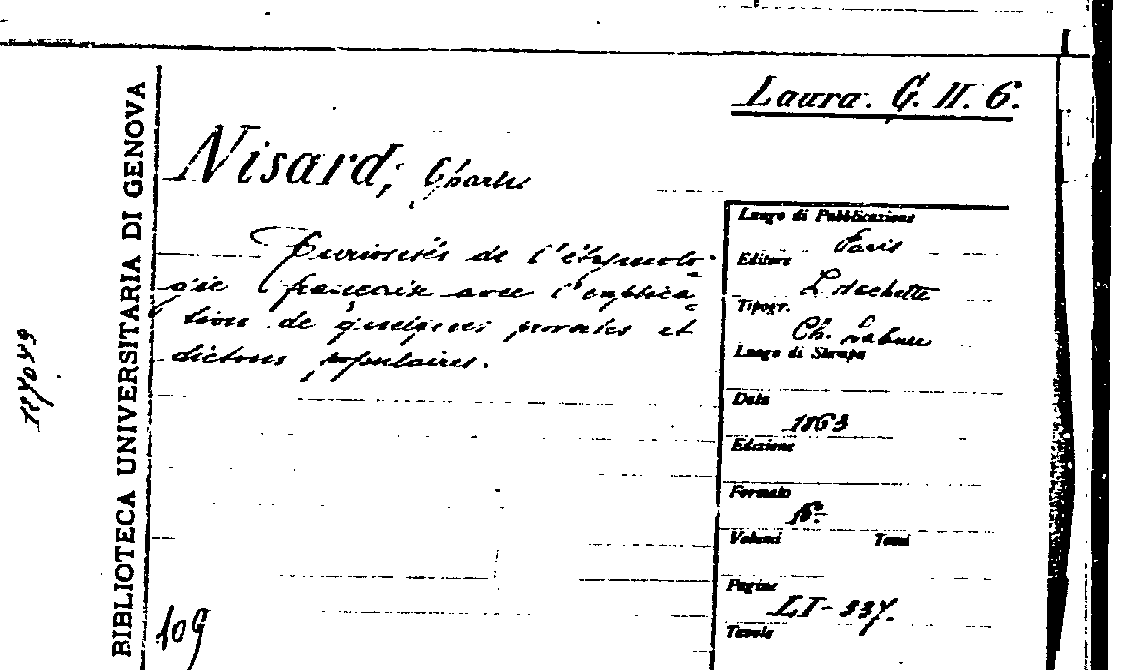 Laura. G. II. 6.
Nisard, Charles
Curiosités de l'étymolo-
gie française avec l'explica-
tion de quelques proverbes et
dictons populaires.
Luogo di Pubblicazione
Paris
Editore
L. Hachette
Tipogr.
Ch. Lahure
Luogo di Stampa
Data
1863
Edizione
Formato
16°
Volumi Tomi
Pagine
LI-337.
Tavole
BIBLIOTECA UNIVERSITARIA DI GENOVA
109